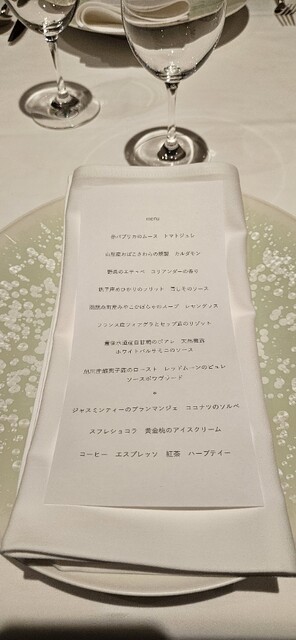 menu
赤パプリカのムース　トマトジュレ
山形産おばこさわらの燻製　カルダモン
野菜のエチュベ　コリアンダーの香り
銚子産のひかりのソリット　蒸しそのソース
スープ　レモングラス
フランス産フォアグラとセップ茸のリゾット
天然真鯛
ホワイトバルサミコのソース
のロースト　レッドムーンのピュレ
ソースポワヴラード
*
ジャスミンティーのブランマンジェ　ココナツのソルベ
スフレショコラ　黄金桃のアイスクリーム
コーヒー　エスプレッソ　紅茶　ハーブティー